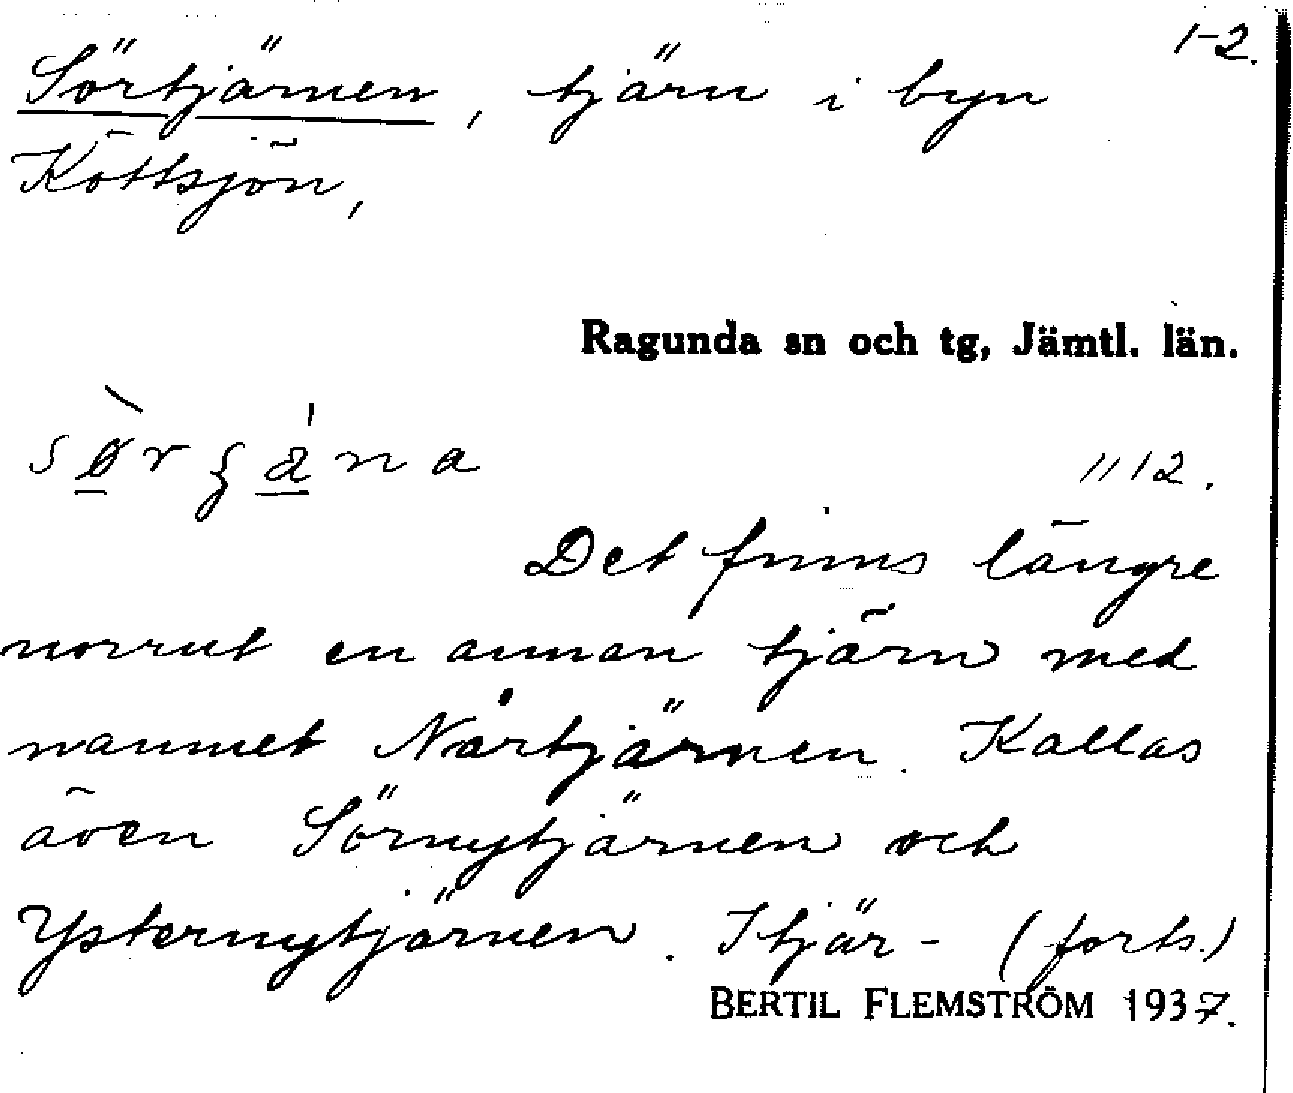 1-2.
Sörtjärnen, tjärn i byn
Köttsjön,
Ragunda sn och tg, Jämtl. län.
11 12.
Det finns längre
norrut en annan tjärn med
namnet Nårtjärnen. Kallas
även Sörnytjärnen och
Ysternytjärnen. I tjär- (forts.)
BERTIL FLEMSTRÖM 1937.